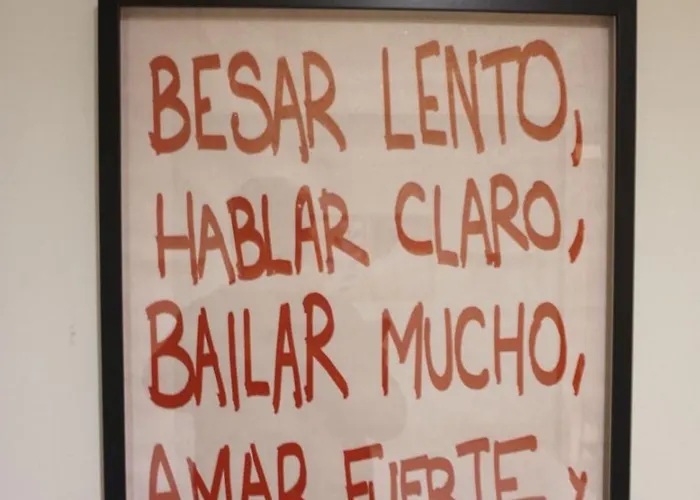 BESAR LENTO,
HABLAR CLARO,
BAILAR MUCHO,
AMAR FUERTE y